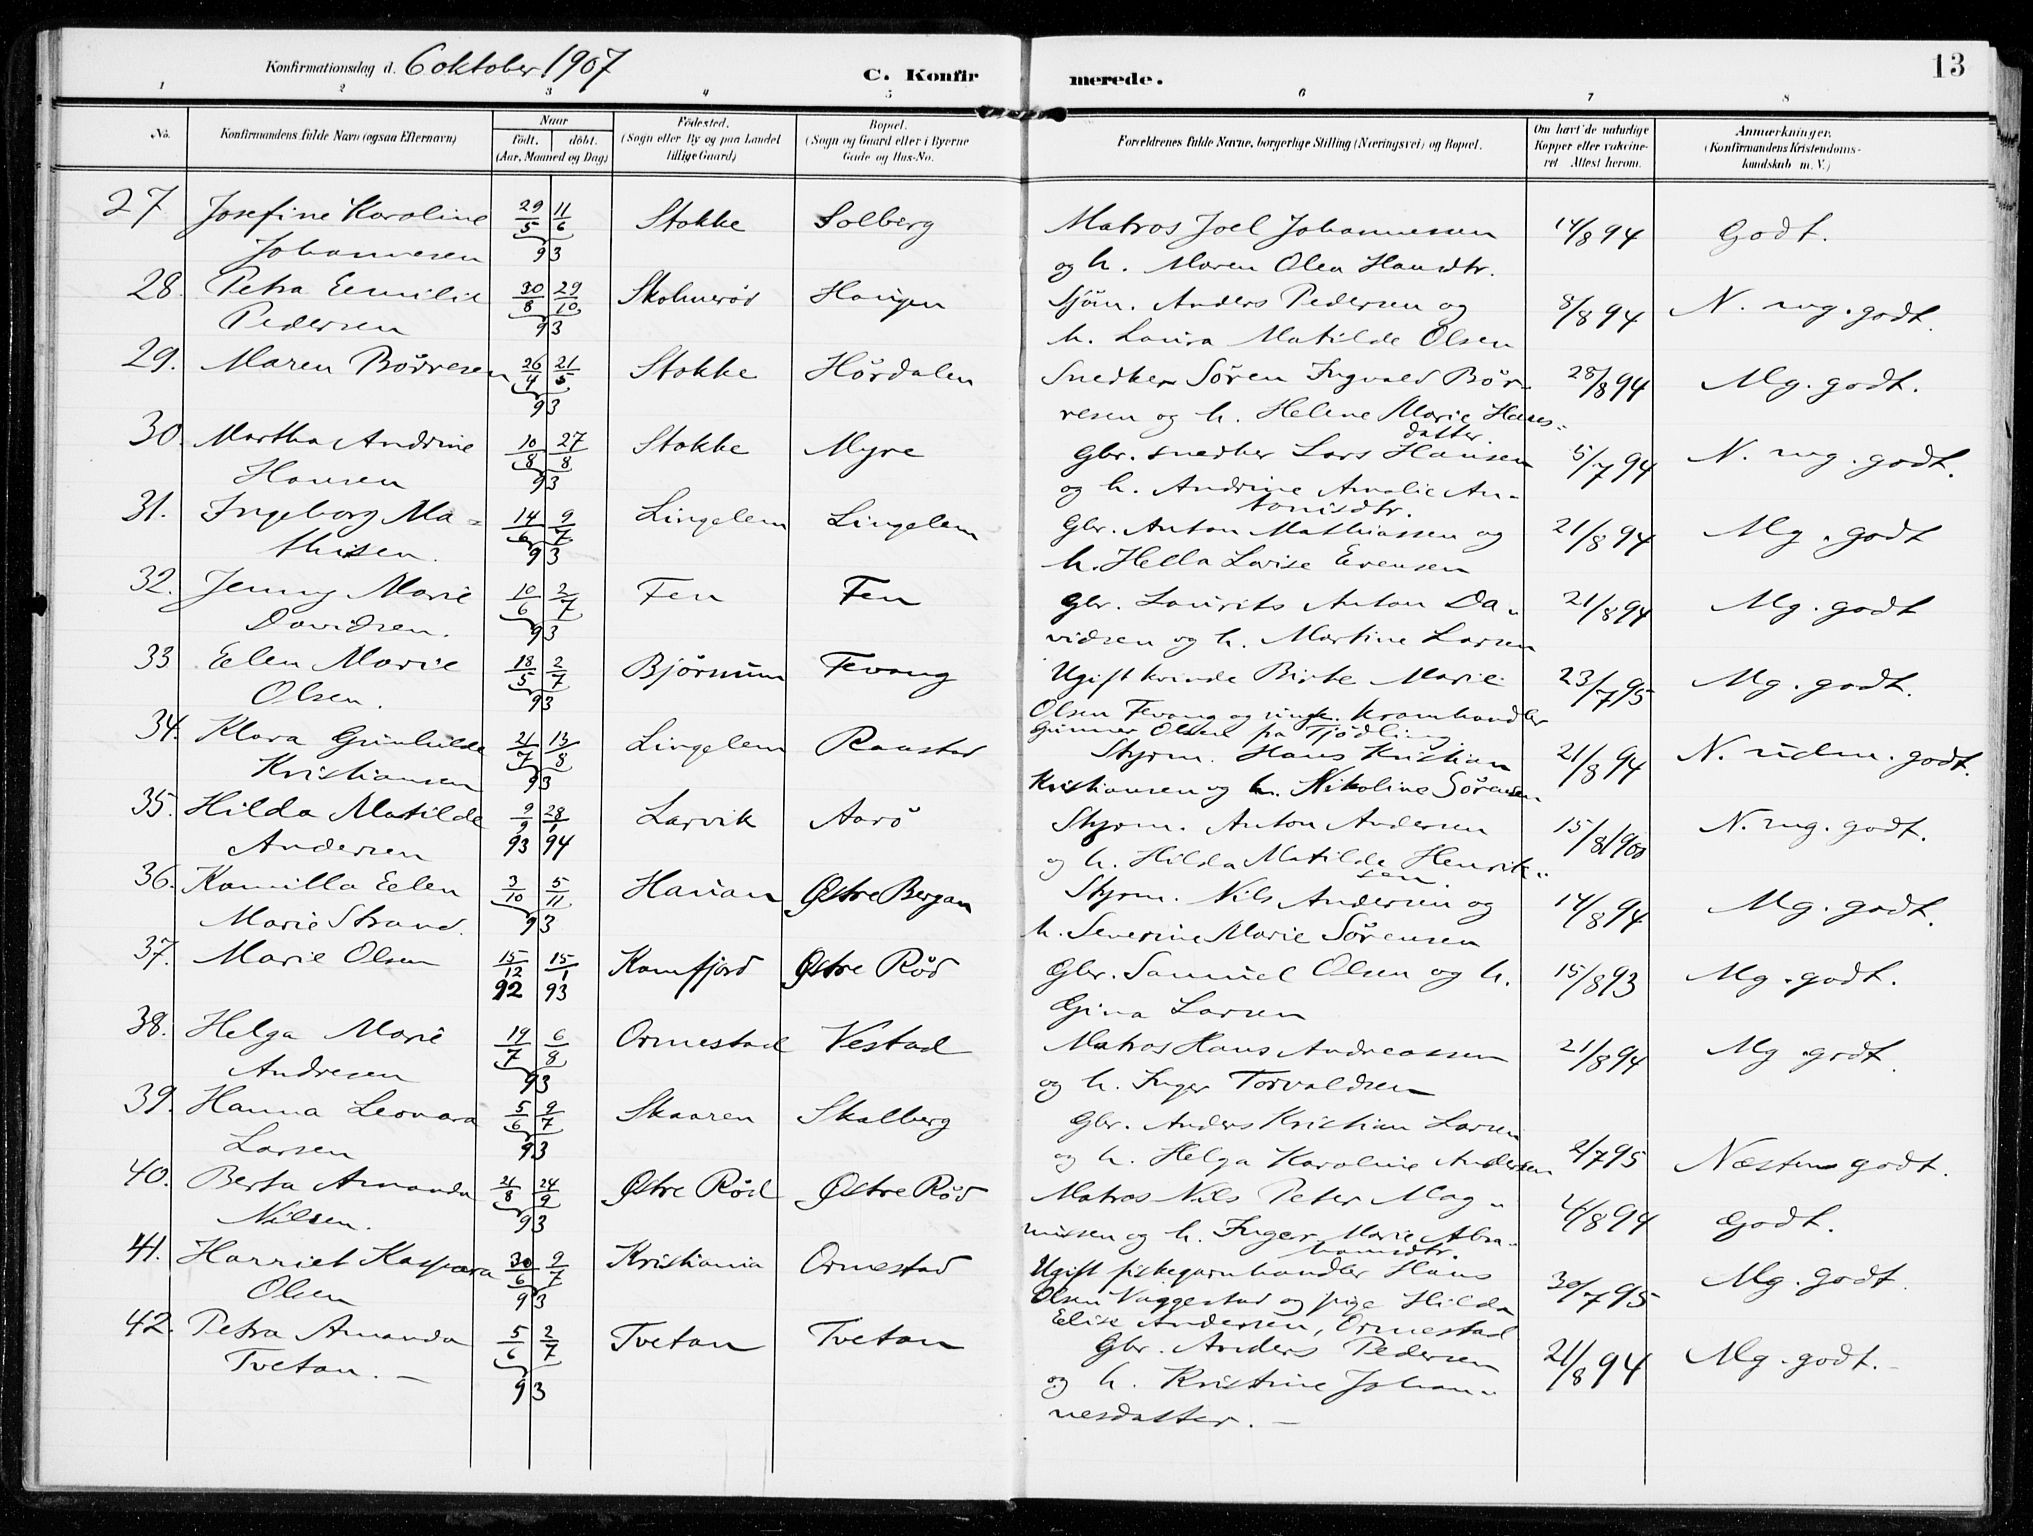 Konfirmationsdag d. 6 oktober 1907
C. Konfirmerede.
13
1 2 3 4 5 6 7 8
No. Konfirmandens fulde Navn (ogsaa Efternavn) Naar født. døbt. (Aar, Maaned og Dag) Fødested. (Sogn eller By og paa Landet tillige Gaard) Bopæl. (Sogn og Gaard eller i Byerne Gade og Hus-No. Forældrenes fulde Navne, borgerlige Stilling (Næringsvei) og Bopæl. Om havt de naturlige Kopper eller vakcineret Attest herom. Anmærkninger. (Konfirmandens Kristendomskundskab m. V.)
27 Josefine Karoline 29/5 11/6 Stokke Solberg Matros Joel Johannessen 14/8 94 Godt.
Johannesen 93 og h. Maren Olea Hansdtr.
28. Petra Emilie 30/8 29/10 Skolmerød Haugen Sjöm. Anders Pedersen og 8/8 94 N. mg. godt.
Pedersen 93 h. Laura Matilde Olsen
29. Maren Börresen 26/4 21/5 Stokke Hördalen Snedker Sören Ingvald Bör- 28/8 94 Mg. godt.
93 resen og h. Helene Marie Hanes-
datter.
30. Martha Andrine 10/8 27/8 Stokke Myre Gbr. snedker Lars Hansen 5/7 94 N. mg. godt.
Hansen 93 og h. Andrine Amalie An-
tonisdtr.
31. Ingeborg Ma- 14/6 9/7 Lingelem Lingelem Gbr. Anton Mathiassen og 21/8 94 Mg. godt
thisen. 93 h. Hella Lovise Evensen
32. Jenny Marie 10/6 2/7 Fen Fen Gbr. Laurits Anton Da- 21/8 94 Mg. godt
Davidsen. 93 vidsen og h. Martine Larsen
33 Elen Marie 18/5 2/7 Björnum Fevang Ugift kvinde Birte Marie 23/7 95 Mg. godt.
Olsen. 93 Olsen Fevang og ungk. Kramhandler
Gunner Olsen paa Tjödling
34. Klara Gunhilde 21/7 13/8 Lingelem Raastad Styrm. Hans Kristian 21/8 94 N. udm. godt.
Kristiansen 93 Kristiansen og h. Nikoline Sørensen
35. Hilda Matilde 9/9 28/1 Larvik Aarö Styrm. Anton Andersen 15/8 1900 N. mg. godt.
Andersen 93 94 og h. Hilda Matilde Henrik-
sen.
36. Kamilla Elen 3/10 5/11 Hauan Østre Bergan Styrm. Nils Andersen og 14/8 94 Mg. godt.
Marie Strand. 93 h. Severine Marie Sörensen
37. Marie Olsen 15/12 15/1 Kamfjord Østre Röd Gbr. Samuel Olsen og h. 15/8 93 Mg. godt.
92 93 Gina Larsen
38. Helga Marie 19/7 6/8 Ormestad Vestad Matros Hans Andreassen 21/8 94 Mg. godt.
Andresen 93 og h. Inger Torvaldsen
39. Hanna Leonara 5/6 9/7 Skaaren Skalberg Gbr. Anders Kristian Larsen
Larsen 93 og h. Helga Karoline Andersen 2/7 95 Næsten godt.
40. Berta Amanda 21/8 24/9 Østre Röd Østre Röd Matros Nils Peter Mag- 4/8 94 Godt.
Nilsen. 93 nussen og h. Inger Marie Abra-
hamsdtr.
41. Harriet Kaspara 30/6 9/7 Kristiania Ormestad Ugift fiskegarnhandler Hans 30/7 95 Mg. godt.
Olsen 93 Olsen Vaggestad og pige Hilda
Elise Andersen, Ormestad
42. Petra Amanda 5/6 2/7 Tvetan Tvetan Gbr. Anders Pedersen 21/8 94 Mg. godt.
Tvetan. 93 og h. Kristine Johan-
nesdatter.